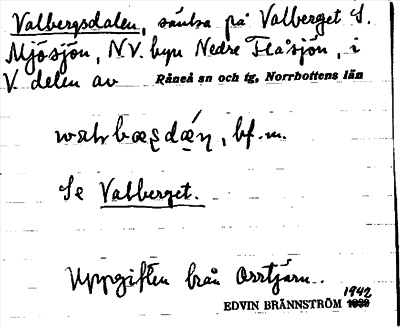 Valbergsdalen, sänka på Valberget S.
Mjösjön, NV. byn Nedre Flåsjön, i
V. delen av Råneå sn och tg, Norrbottens län
bf. m.
Se Valberget.
Uppgiften från Orrtjärn.
1942
EDVIN BRÄNNSTRÖM 1939